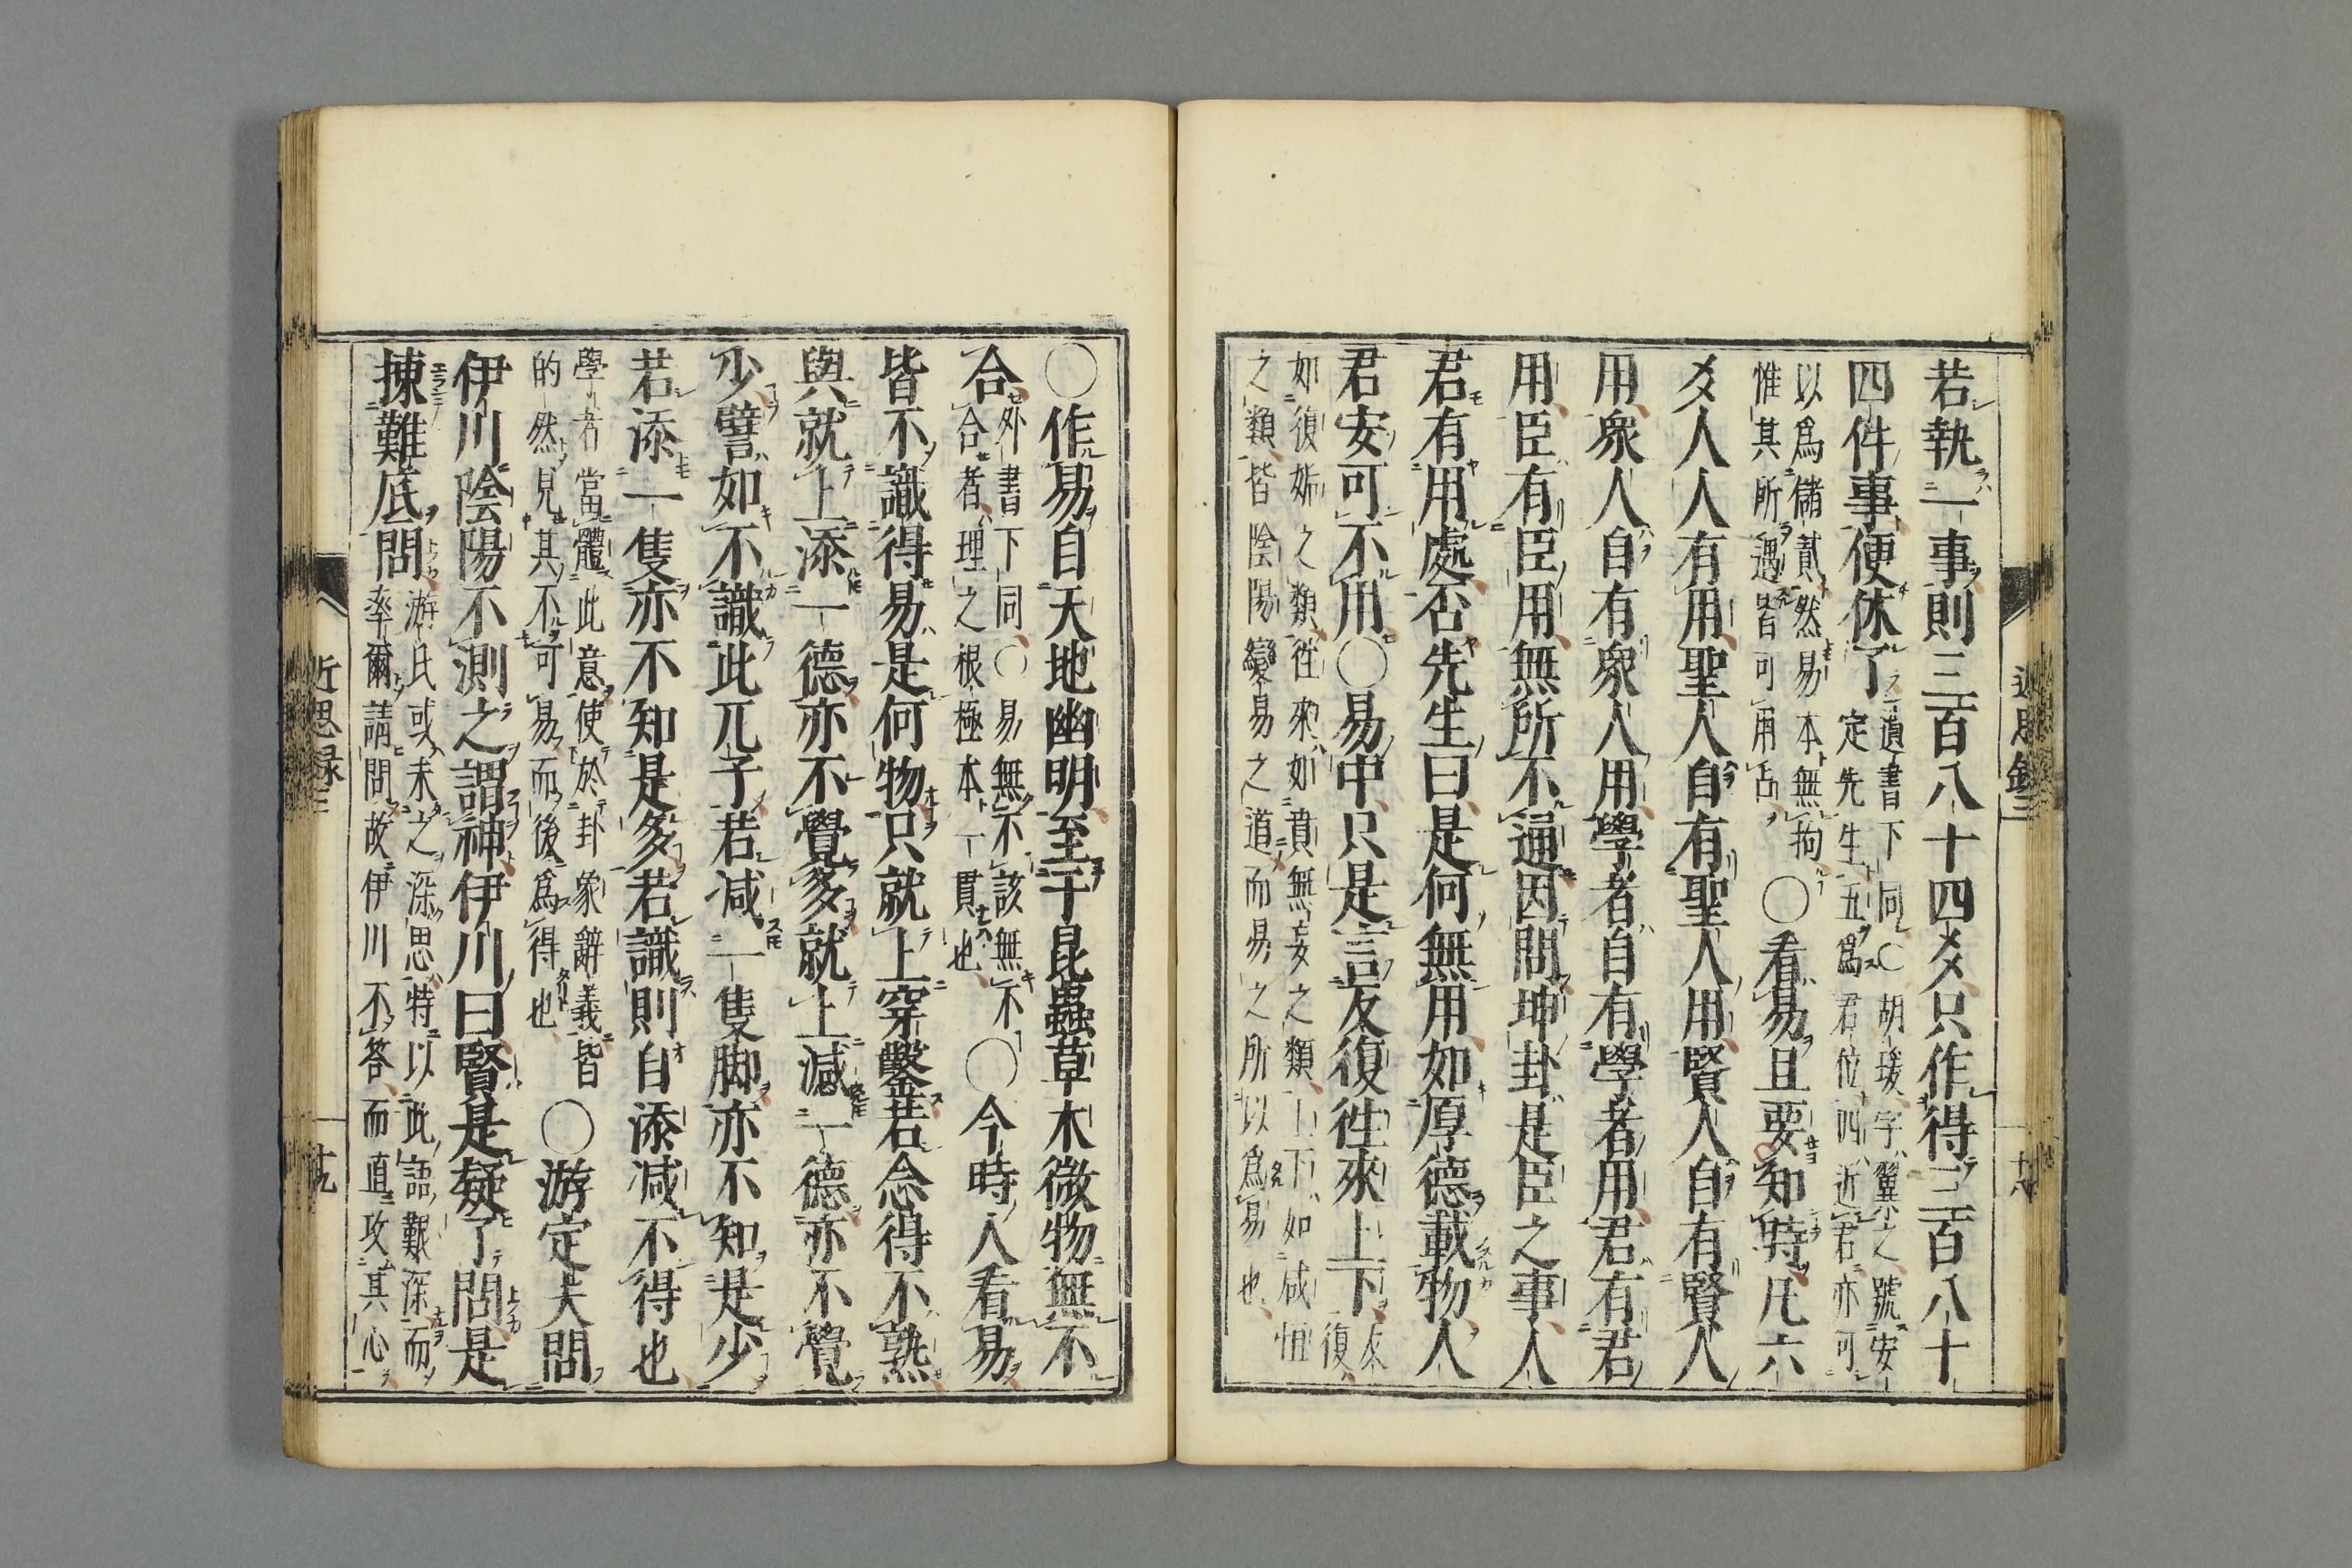 若執一事則三百八十四爻只作得三百八十
四件事便休了
遺書下同○胡瑗字翼之號安
定先生五爲君位四近君亦可
以爲儲貳然易本無拘
惟其所遇皆可用占
○看易且要知時凡六
爻人人有用聖人自有聖人用賢人自有賢人
用衆人自有衆人用學者自有學者用君有君
用臣有臣用無所不通因問坤卦是臣之事人
君有用處否先生曰是何無用如厚德載物人
君安可不用○易中只是言反復徃來上下
反
復
如復姤之類徃來如賁無妄之類上下如咸恒
之類皆陰陽變易之道而易之所以爲易也
近思録三
○作易自天地幽明至于昆蟲草木微物無不
合
外書下同○易無不該無不
合者理之根極本一貫也
○今時人看易
皆不識得易是何物只就上穿鑿若念得不熟
與就上添一德亦不覺多就上減一德亦不覺
少譬如不識此兀子若減一隻脚亦不知是少
若添一隻亦不知是多若識則自添減不得也
學者當體此意使於卦象辭義皆
的然見其不可易而後爲得也
○游定夫問
伊川陰陽不測之謂神伊川曰賢是疑了問是
揀難底問
游氏或未之深思特以此語艱深而
率爾請問故伊川不答而直攻其心
近思録三